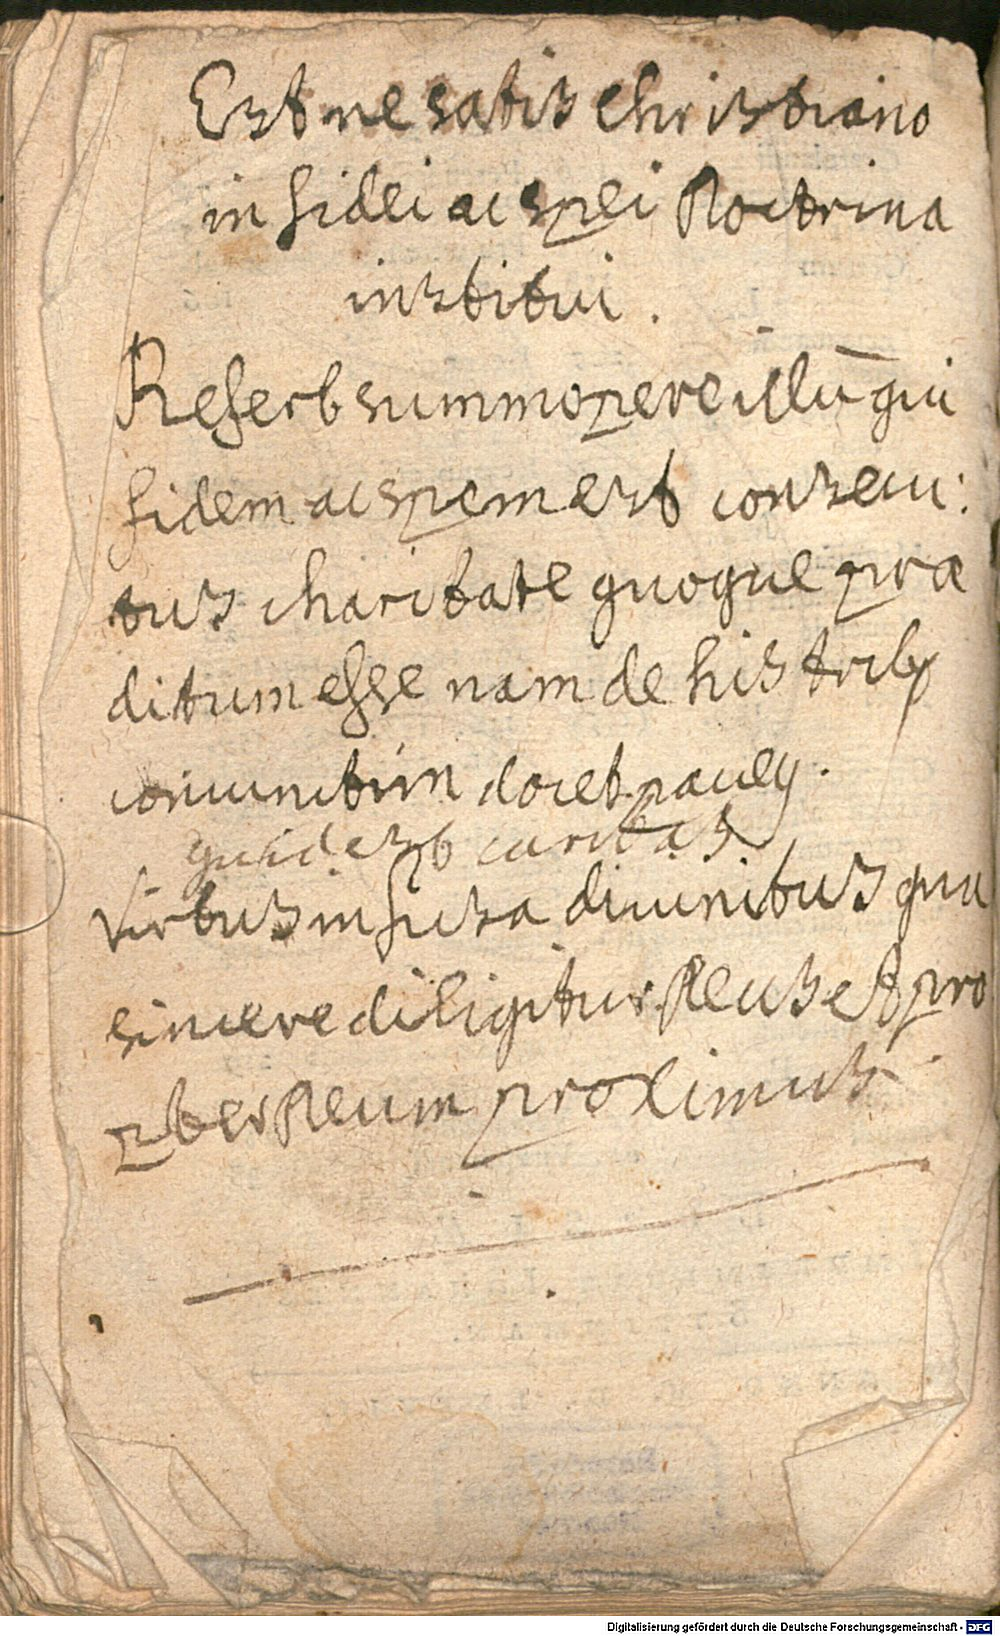 Estne satis christiano
in fidei ac spei Doctrina
institui.
Refert summopere illū qui
fidem ac spem est consecu:
tus charitate quoque præ
ditum esse nam de his trib9
coniunctim docet paul9.
quid est caritas
Virtus infusa diuinitus qua
sincere diligitur Deus et pro
pter Deum proximus
Digitalisierung gefördert durch die Deutsche Forschungsgemeinschaft - DFG